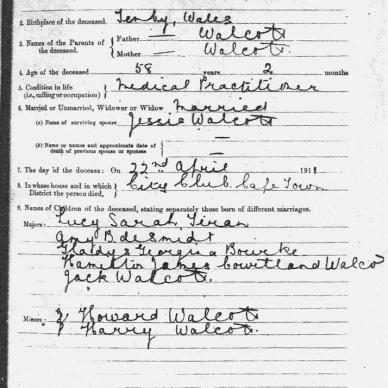 2. Birthplace of the deceased. Tenby, Wales
3. Names of the Parents of the deceased. Father — Walcott
Mother — Walcott
4. Age of the deceased 58 years 2 months
5. Condition in life (i.e., calling or occupation) Medical Practitioner
6. Married or Unmarried, Widower or Widow Married
(a) Name of surviving spouse Jessie Walcott
(b) Name or names and approximate date of death of previous spouse or spouses —
7. The day of the decease: On 22nd April 1911
8. In whose house and in which District the person died, City Club. Cape Town
9. Names of Children of the deceased, stating separately those born of different marriages.
Majors: Lucy Sarah
Amy B. de Smidt
Gladys Georgina Bourke
Hamilton James Walcot
Jack Walcott.
Minors: Howard Walcott
Harry Walcott.